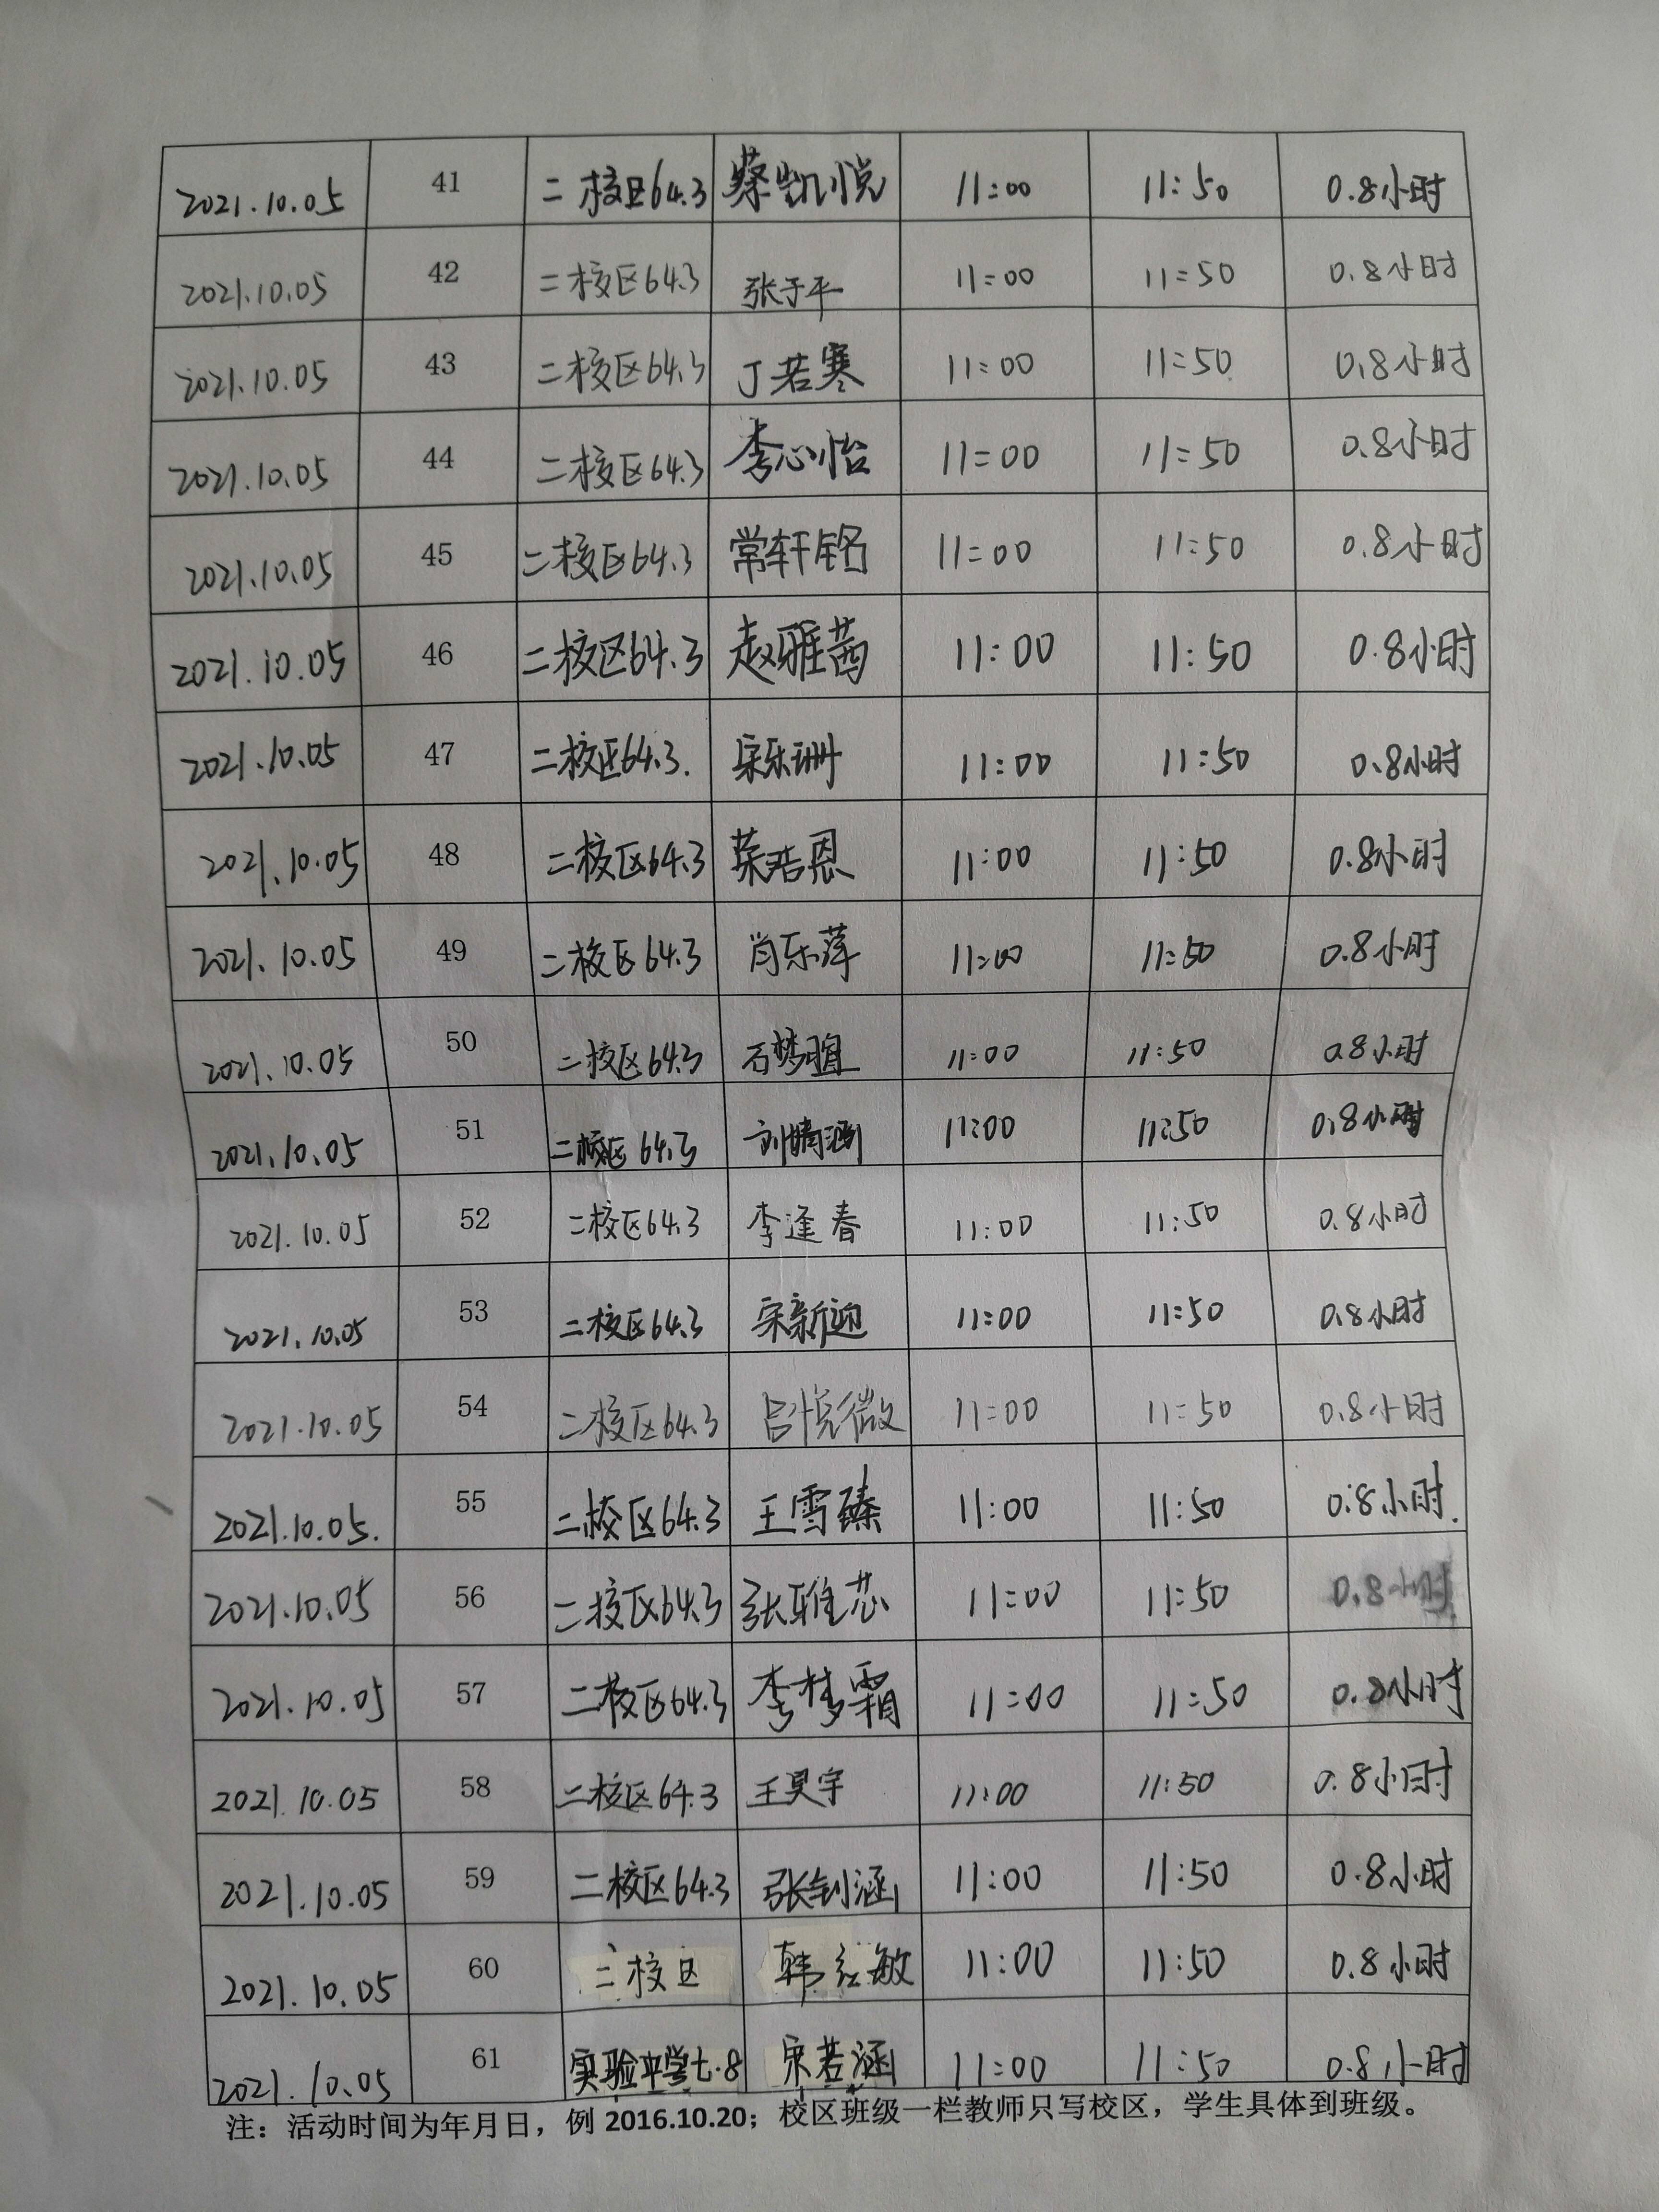 2021.10.05 41 二校区64.3 蔡凯悦 11:00 11:50 0.8小时
2021.10.05 42 二校区64.3 张于平 11:00 11:50 0.8小时
2021.10.05 43 二校区64.3 丁若寒 11:00 11:50 0.8小时
2021.10.05 44 二校区64.3 李心怡 11:00 11:50 0.8小时
2021.10.05 45 二校区64.3 常轩铭 11:00 11:50 0.8小时
2021.10.05 46 二校区64.3 赵雅茜 11:00 11:50 0.8小时
2021.10.05 47 二校区64.3. 宋乐珊 11:00 11:50 0.8小时
2021.10.05 48 二校区64.3 荣浩恩 11:00 11:50 0.8小时
2021.10.05 49 二校区64.3 肖乐萍 11:00 11:50 0.8小时
2021.10.05 50 二校区64.3 石梦瑄 11:00 11:50 0.8小时
2021.10.05 51 二校区64.3 刘晴涵 11:00 11:50 0.8小时
2021.10.05 52 二校区64.3 李逢春 11:00 11:50 0.8小时
2021.10.05 53 二校区64.3 宋新迎 11:00 11:50 0.8小时
2021.10.05 54 二校区64.3 吕悦微 11:00 11:50 0.8小时
2021.10.05. 55 二校区64.3 王雪臻 11:00 11:50 0.8小时.
2021.10.05 56 二校区64.3 张雅芯 11:00 11:50 0.8小时
2021.10.05 57 二校区64.3 李梦霜 11:00 11:50 0.8小时
2021.10.05 58 二校区64.3 王昊宇 11:00 11:50 0.8小时
2021.10.05 59 二校区64.3 张钊涵 11:00 11:50 0.8小时
2021.10.05 60 二校区 韩红敏 11:00 11:50 0.8小时
2021.10.05 61 实验中学七.8 宋若涵 11:00 11:50 0.8小时
注：活动时间为年月日，例 2016.10.20；校区班级一栏教师只写校区，学生具体到班级。